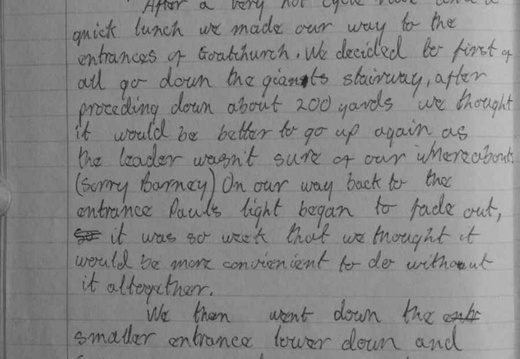 After a very hot cycle and a
quick lunch we made our way to the
entrances of Goatchurch. We decided to first of
all go down the giants stairway, after
proceding down about 200 yards we thought
it would be better to go up again as
the leader wasn't sure of our whereabouts
(sorry Barney) On our way back to the
entrance Pauls light began to fade out,
it was so weak that we thought it
would be more convienient to do without
it altogether.
We then went down the
smaller entrance lower down and